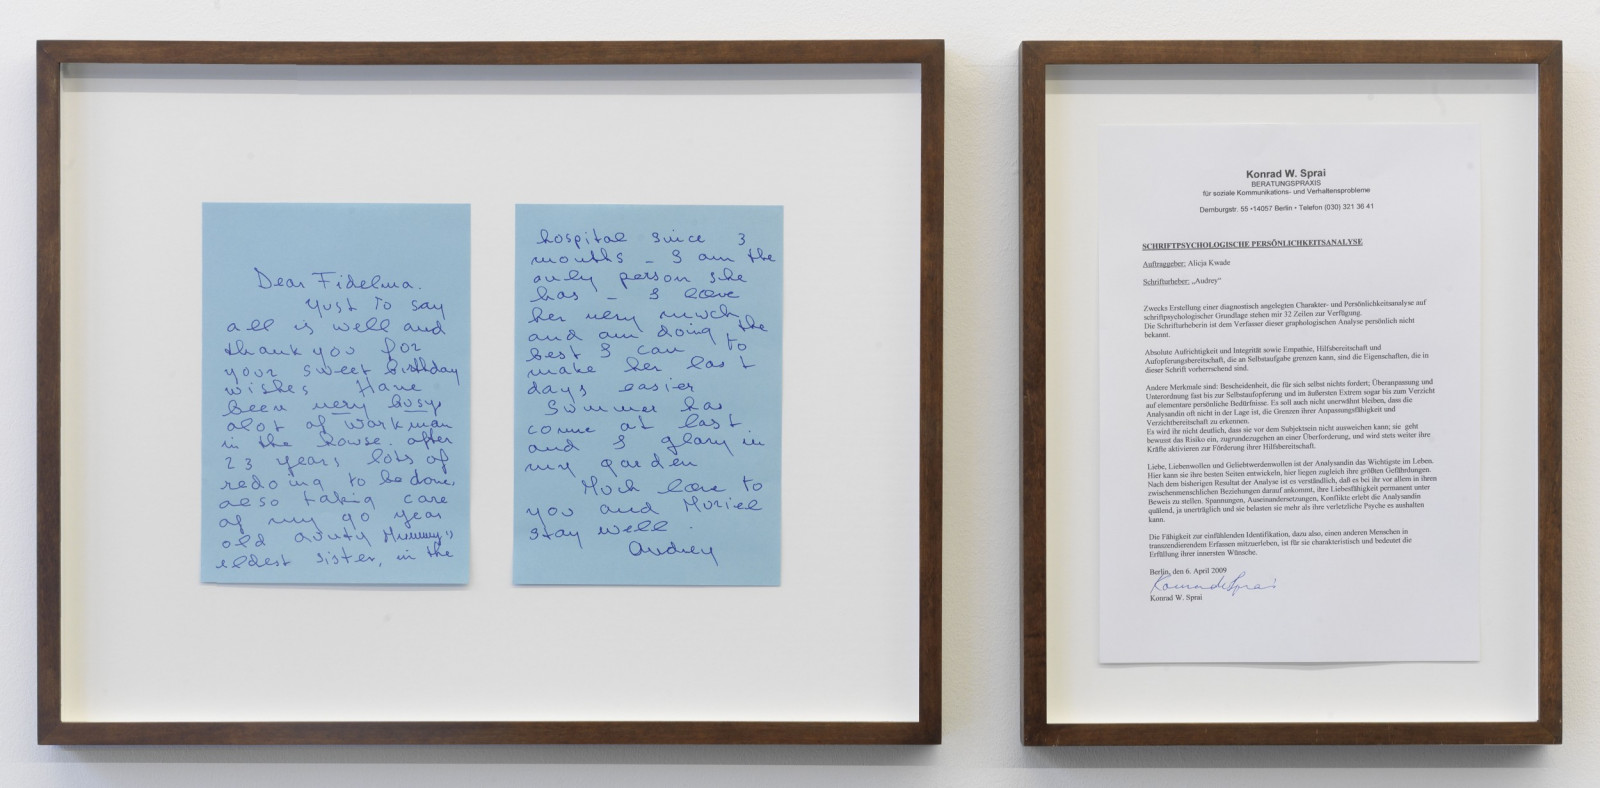 Dear Fidelma.
Yust To say
all is well and
thank you for
your sweet birthday
wishes Have
been very busy
alot of workman
in the howse. after
23 years lots of
redoing to be done.
also taking care
of my 90 year
old aunty Mummy's
eldest sister, in the
hospital since 3
months - I am the
only person she
has - I love
her very much
and am doing the
best I can to
make her last
days easier
Sommer has
come at last
and I glory in
my garden
Much love to
you and Muriel
stay well.
Audrey
Konrad W. Sprai
BERATUNGSPRAXIS
für soziale Kommunikations- und Verhaltensprobleme
Dernburgstr. 55 •14057 Berlin • Telefon (030) 321 36 41
SCHRIFTPSYCHOLOGISCHE PERSÖNLICHKEITSANALYSE
Auftraggeber: Alicja Kwade
Schrifturheber: „Audrey"
Zwecks Erstellung einer diagnostisch angelegten Charakter- und Persönlichkeitsanalyse auf
schriftpsychologischer Grundlage stehen mir 32 Zeilen zur Verfügung.
Die Schrifturheberin ist dem Verfasser dieser graphologischen Analyse persönlich nicht
bekannt.
Absolute Aufrichtigkeit und Integrität sowie Empathie, Hilfsbereitschaft und
Aufopferungsbereitschaft, die an Selbstaufgabe grenzen kann, sind die Eigenschaften, die in
dieser Schrift vorherrschend sind.
Andere Merkmale sind: Bescheidenheit, die für sich selbst nichts fordert; Überanpassung und
Unterordnung fast bis zur Selbstaufopferung und im äußersten Extrem sogar bis zum Verzicht
auf elementare persönliche Bedürfnisse. Es soll auch nicht unerwähnt bleiben, dass die
Analysandin oft nicht in der Lage ist, die Grenzen ihrer Anpassungsfähigkeit und
Verzichtbereitschaft zu erkennen.
Es wird ihr nicht deutlich, dass sie vor dem Subjektsein nicht ausweichen kann; sie geht
bewusst das Risiko ein, zugrundezugehen an einer Überforderung, und wird stets weiter ihre
Kräfte aktivieren zur Förderung ihrer Hilfsbereitschaft.
Liebe, Liebenwollen und Geliebtwerdenwollen ist der Analysandin das Wichtigste im Leben.
Hier kann sie ihre besten Seiten entwickeln, hier liegen zugleich ihre größten Gefährdungen.
Nach dem bisherigen Resultat der Analyse ist es verständlich, daß es bei ihr vor allem in ihren
zwischenmenschlichen Beziehungen darauf ankommt, ihre Liebesfähigkeit permanent unter
Beweis zu stellen. Spannungen, Auseinandersetzungen, Konflikte erlebt die Analysandin
quälend, ja unerträglich und sie belasten sie mehr als ihre verletzliche Psyche es aushalten
kann.
Die Fähigkeit zur einfühlenden Identifikation, dazu also, einen anderen Menschen in
transzendierendem Erfassen mitzuerleben, ist für sie charakteristisch und bedeutet die
Erfüllung ihrer innersten Wünsche.
Berlin, den 6. April 2009
Konrad W. Sprai
Konrad W. Sprai